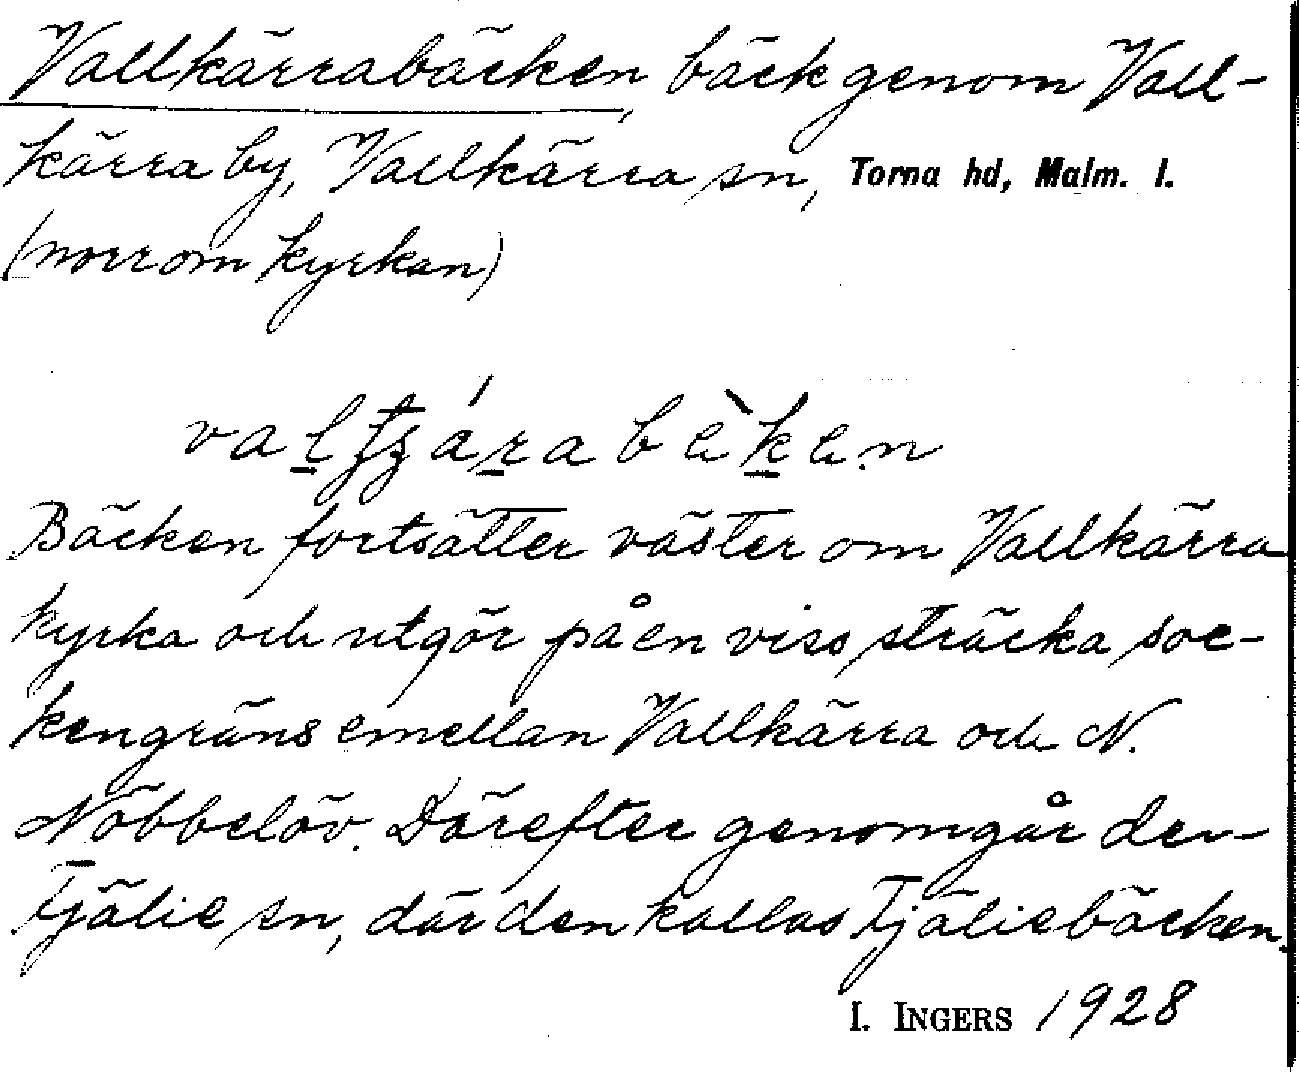 Vallkärrabäcken, bäck genom Vall-
kärra by, Vallkärra sn, Torna hd, Malm. l.
(norr om kyrkan)
Bäcken fortsätter väster om Vallkärra
kyrka och utgör på en viss sträcka soc-
kengräns emellan Vallkärra och N.
Nöbbelöv. Därefter genomgår den
Fjälie sn, där den kallas Fjäliebäcken.
I. INGERS 1928